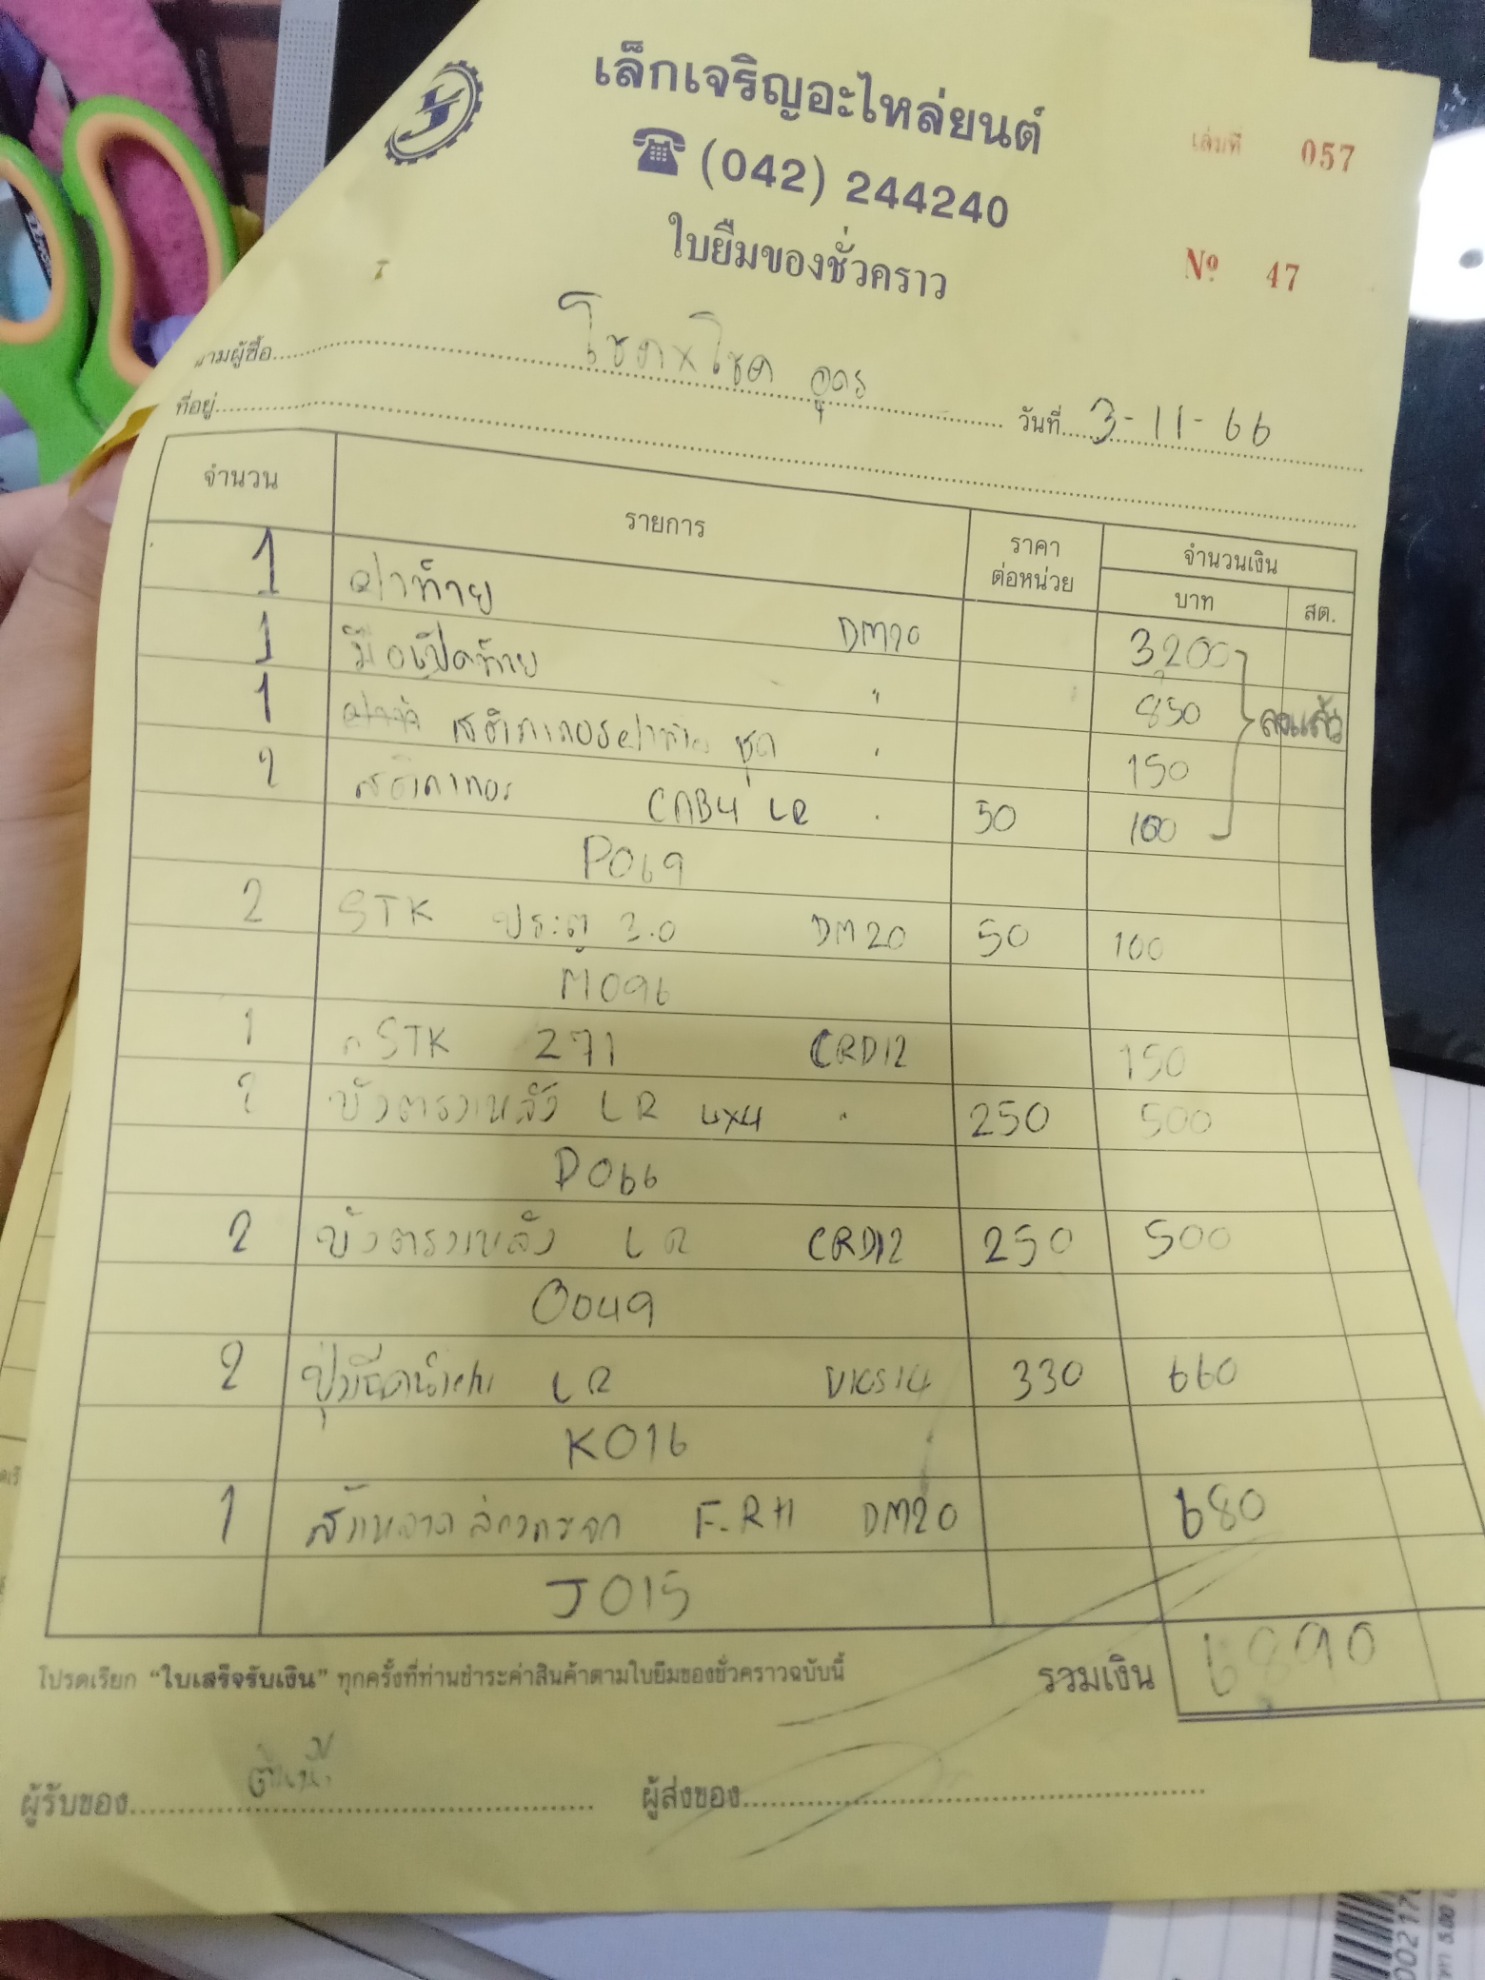 เล็กเจริญอะไหล่ยนต์
เล่มที่ 057
(042) 244240
ใบยืมของชั่วคราว
Nº 47
นามผู้ซื้อ โชคxโชค อุดร
ที่อยู่ วันที่ 3-11-66
จำนวน รายการ ราคาต่อหน่วย จำนวนเงิน บาท สต.
1 ฝาท้าย DM20 3,200
1 มือเปิดท้าย " 850 ลงแล้ว
1 สติกเกอร์ฝาท้าย ชุด " 150
2 สติกเกอร์ CAB4 LR " 50 100
P069
2 STK ประตู 3.0 DM20 50 100
M096
1 STK 271 CRD12 150
2 บังตรงหลัง LR 4x4 " 250 500
D066
2 บังตรงหลัง LR CRD12 250 500
O049
2 ปุ่มฉีดน้ำ LR VIGS14 330 660
K016
1 สักหลาดล่างกระจก F-RH DM20 680
J015
โปรดเรียก “ใบเสร็จรับเงิน” ทุกครั้งที่ท่านชำระค่าสินค้าตามใบยืมของชั่วคราวฉบับนี้
รวมเงิน 6,890
ผู้รับของ ผู้ส่งของ